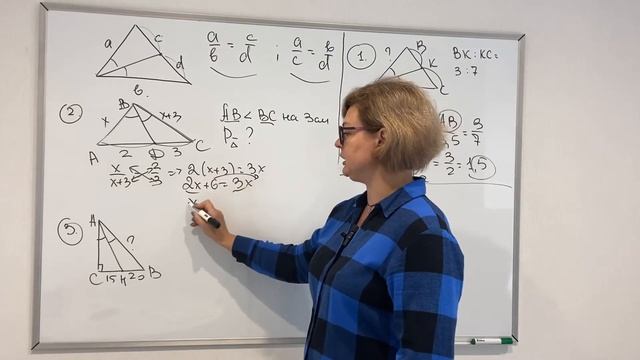 a c d b
a/b = c/d ; a/c = b/d
1. ? B K C
BK : KC =
3 : 7
2. B x x+3 A 2 D 3 C
AB < BC на 3см
P△ = ?
x/x+3 = 2/3 => 2(x+3) = 3x
2x + 6 = 3x
x
AB)/ ,5 = 3/7
= 3/2 = 1,5
3. A ? C 15 20 B